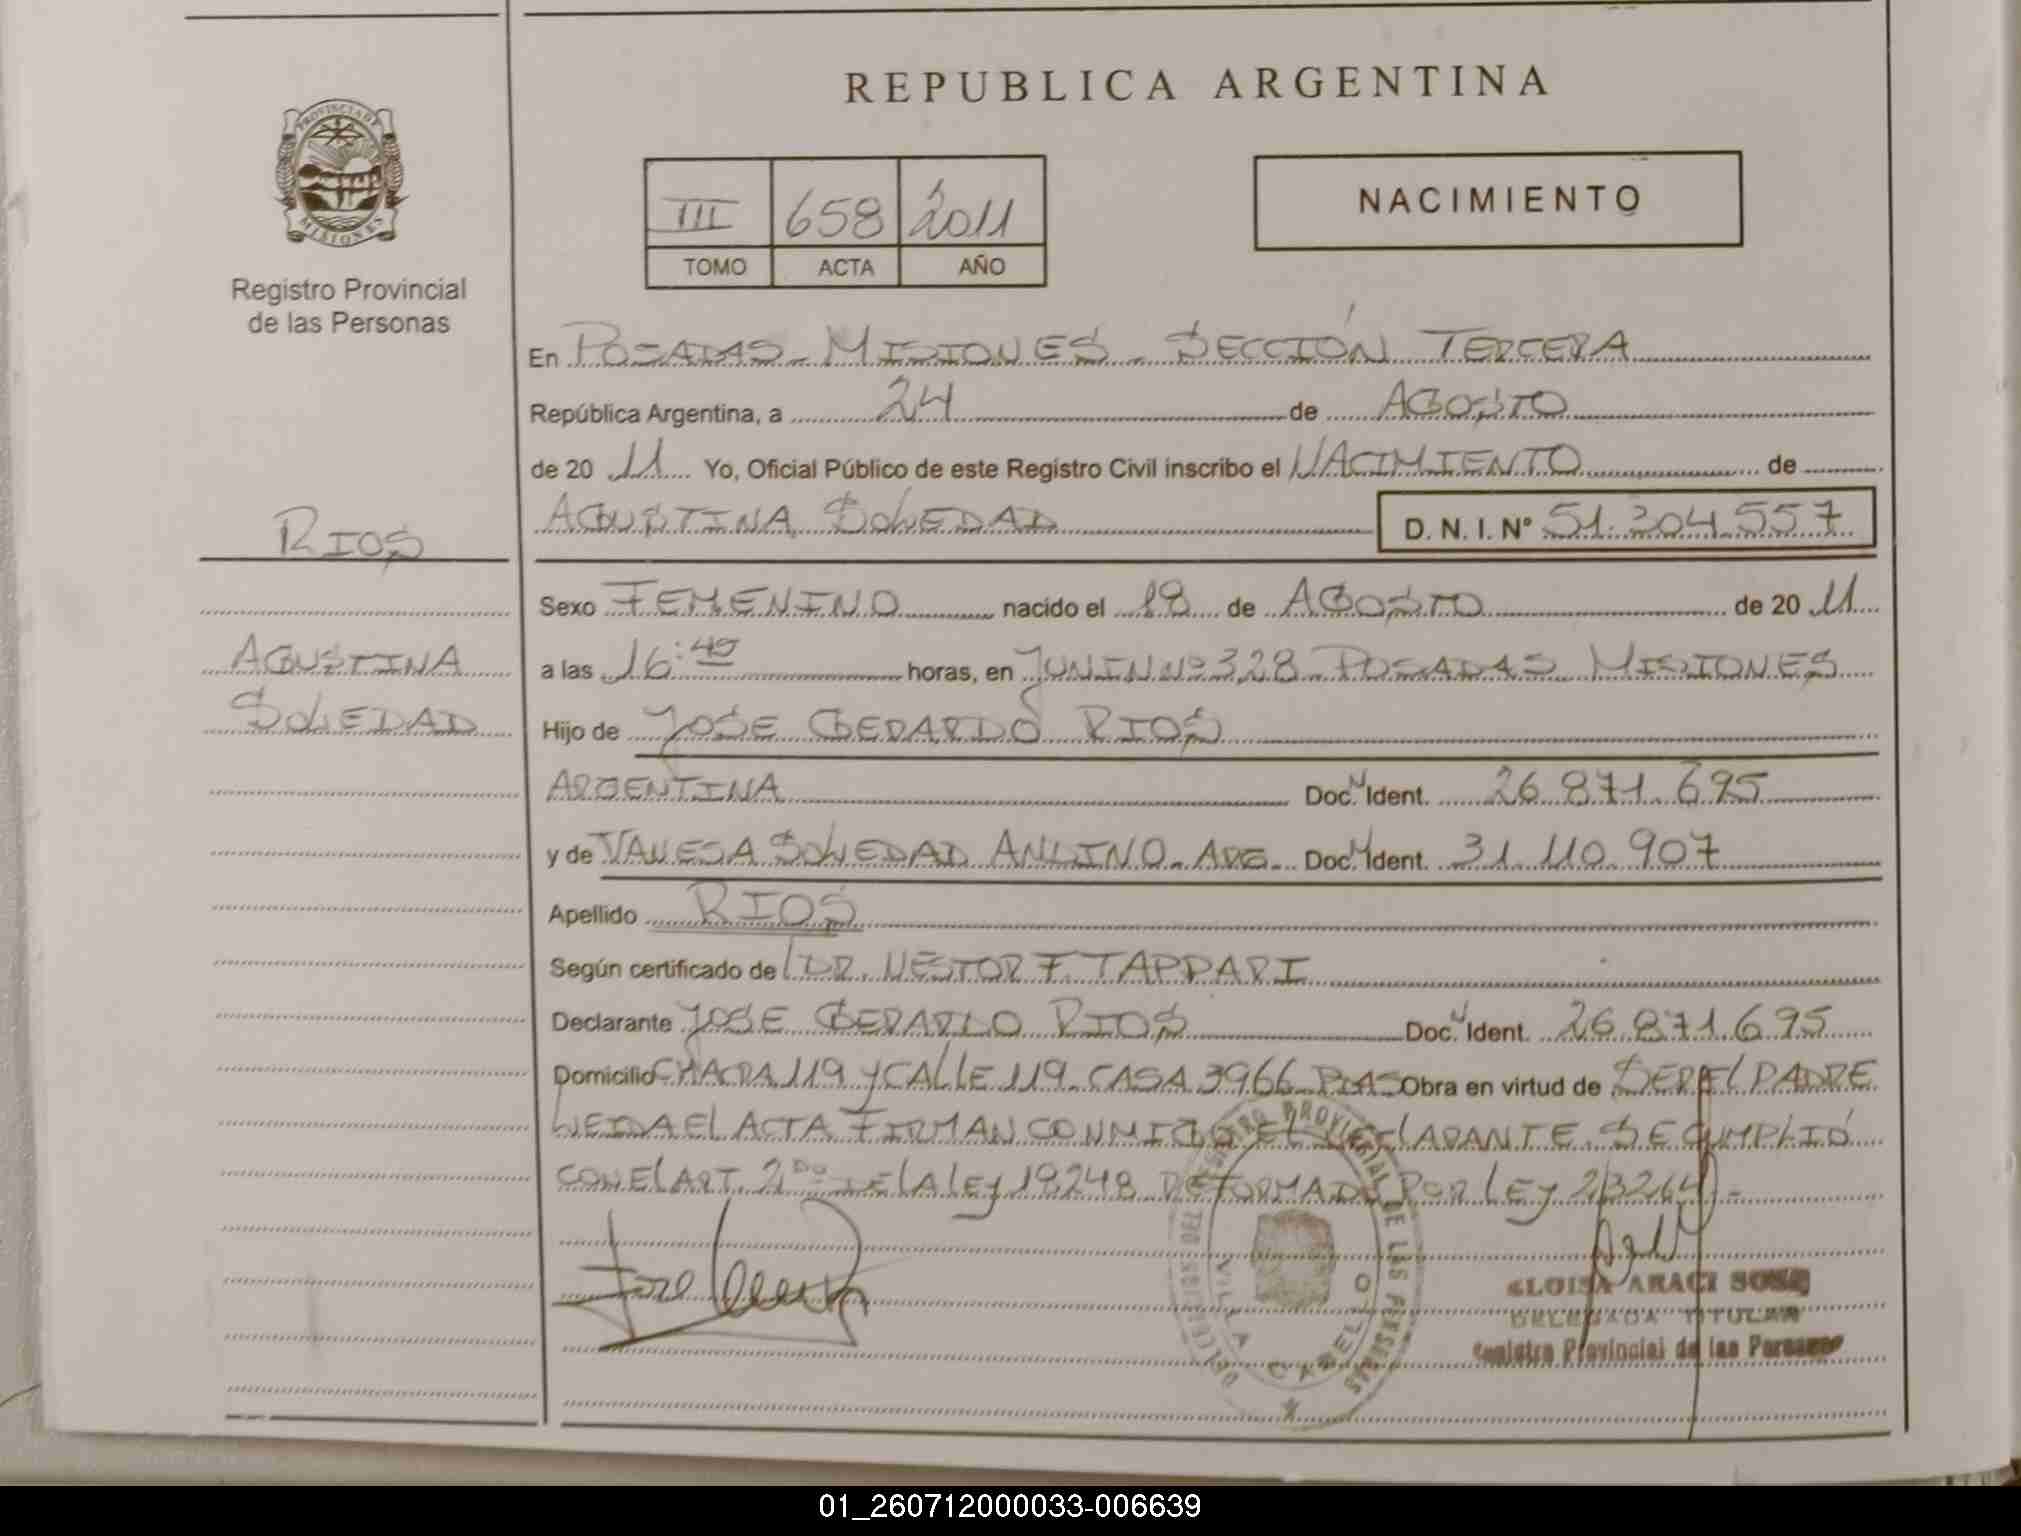 REPUBLICA ARGENTINA
PROVINCIA DE
MISIONES
Registro Provincial
de las Personas
III 658 2011
TOMO ACTA AÑO
NACIMIENTO
En POSADAS - MISIONES - SECCIÓN TERCERA
República Argentina, a 24 de AGOSTO
de 20 11 Yo, Oficial Público de este Registro Civil inscribo el NACIMIENTO de
AGUSTINA SOLEDAD D. N. I. Nº 51.304.557
RIOS
AGUSTINA
SOLEDAD
Sexo FEMENINO nacido el 18 de AGOSTO de 20 11
a las 16:45 horas, en JUNIN Nº 328 - POSADAS MISIONES
Hijo de JOSE GERARDO RIOS
ARGENTINA Doc. N Ident. 26.871.695
y de VANESA SOLEDAD ANDINO - ARG. Doc. N Ident. 31.110.907
Apellido RIOS
Según certificado de DR. NESTOR F. TAPPARI
Declarante JOSE GERARDO RIOS Doc. N Ident. 26.871.695
Domicilio CHACRA 119 Y CALLE 119 - CASA 3966 - PDAS Obra en virtud de SER EL PADRE
LEIDA EL ACTA FIRMAN CONMIGO EL DECLARANTE. SE CUMPLIÓ
CON EL ART. 2DO DE LA LEY 18248 REFORMADO POR LEY 23264 -
DELEGACION DEL REGISTRO PROVINCIAL DE LAS PERSONAS
VILLA CABELLO
ELOISA ARACI SOSA
DELEGADA TITULAR
Registro Provincial de las Personas
01_260712000033-006639